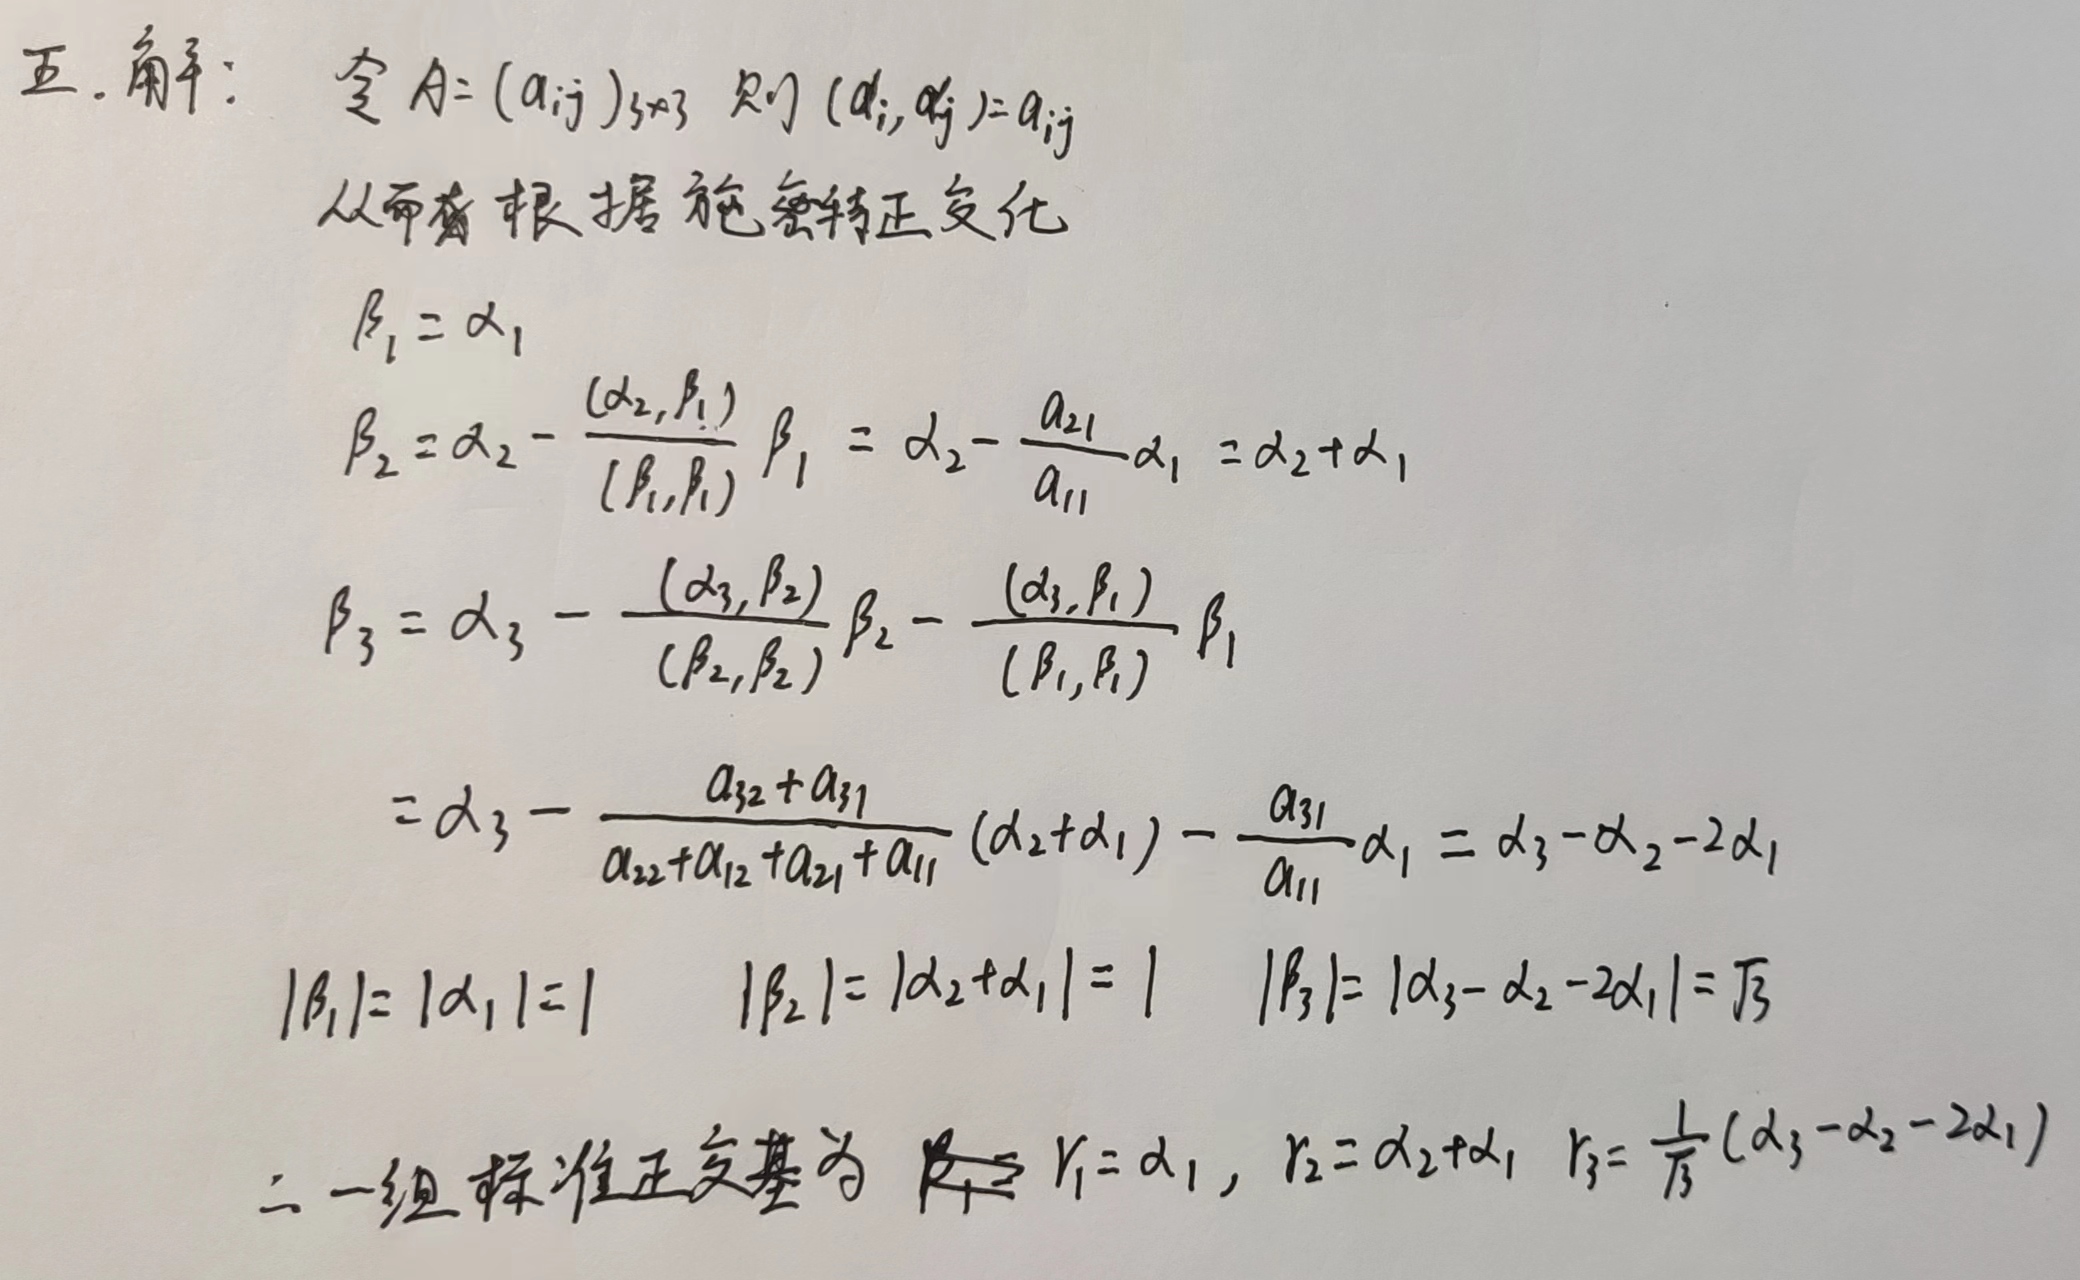 五.解: 令 A=(aij)3×3 则 (αi,αj)=aij
从而 根据施密特正交化
β1=α1
β2=α2-(α2,β1)/(β1,β1) β1=α2-a21/a11 α1=α2+α1
β3=α3-(α3,β2)/(β2,β2) β2-(α3,β1)/(β1,β1) β1
=α3-(a32+a31)/(a22+a12+a21+a11) (α2+α1)-a31/a11 α1=α3-α2-2α1
|β1|=|α1|=1 |β2|=|α2+α1|=1 |β3|=|α3-α2-2α1|=√3
∴一组标准正交基为 r1=α1, r2=α2+α1 r3=1/√3(α3-α2-2α1)